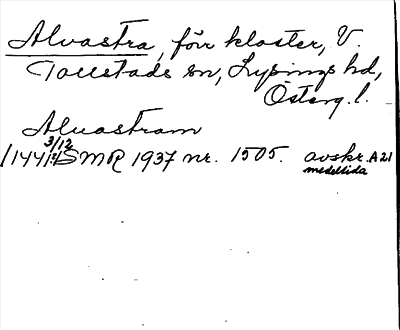 Alvastra, förr kloster, V.
Tollstads sn, Lysings hd,
Österg. l.
Alvastram
3/12
1441 SMR 1937 nr. 1505. avskr. A21
medeltida